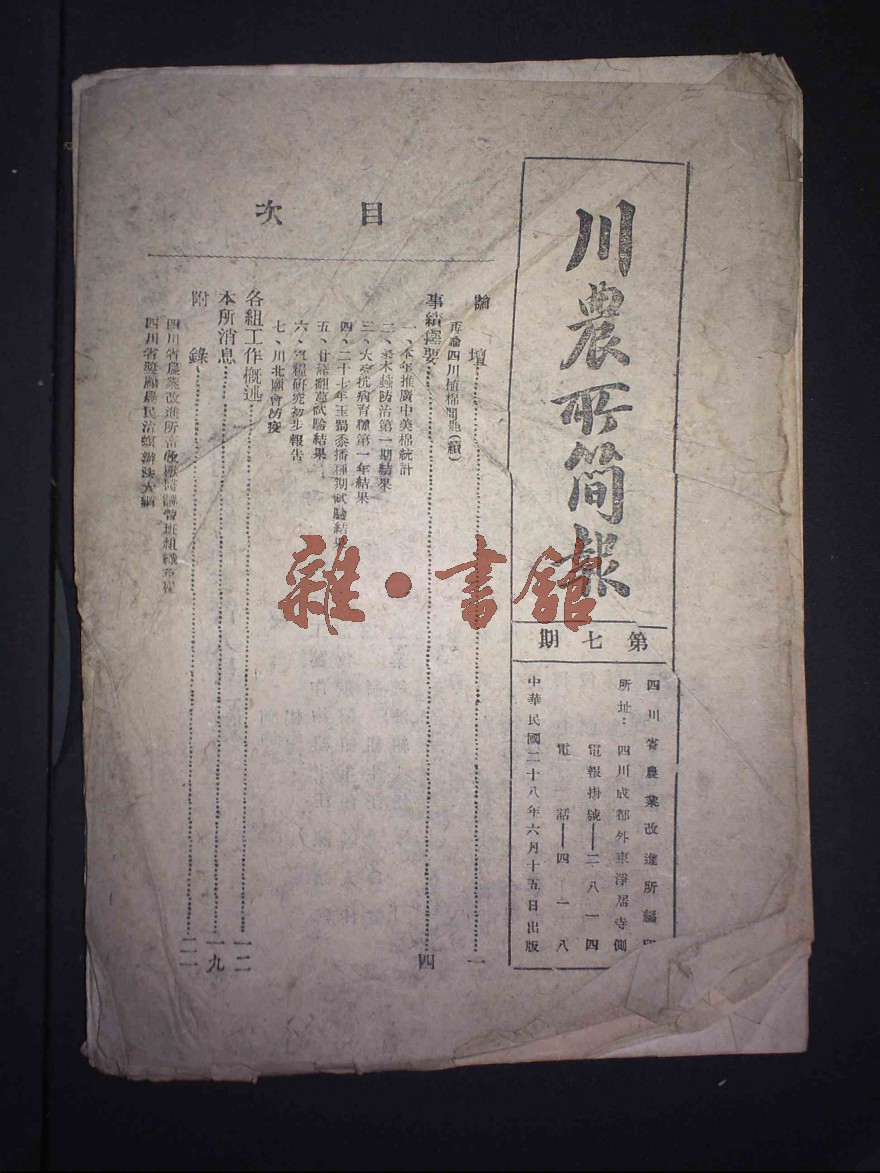 川農所簡報
第七期
四川省農業改進所編印
所址：四川成都外東淨居寺側
電報掛號——二八一四
電話——四一八
中華民國二十八年六月十五日出版
目次
論壇 一
再論四川植棉問題(續)
事績擇要 四
一、本年推廣中美棉統計
二、桑木蝨防治第一期結果
三、大麥抗病育種第一年結果
四、二十七年玉蜀黍播種期試驗結果
五、甘藷翻蔓試驗結果
六、軍糧研究初步報告
七、川北廟會防疫
各組工作概述 一二
本所消息 一九
附錄 二一
四川省農業改進所畜牧獸醫講習班組織章程
四川省獎勵農民治螟辦法大綱
雜·書館